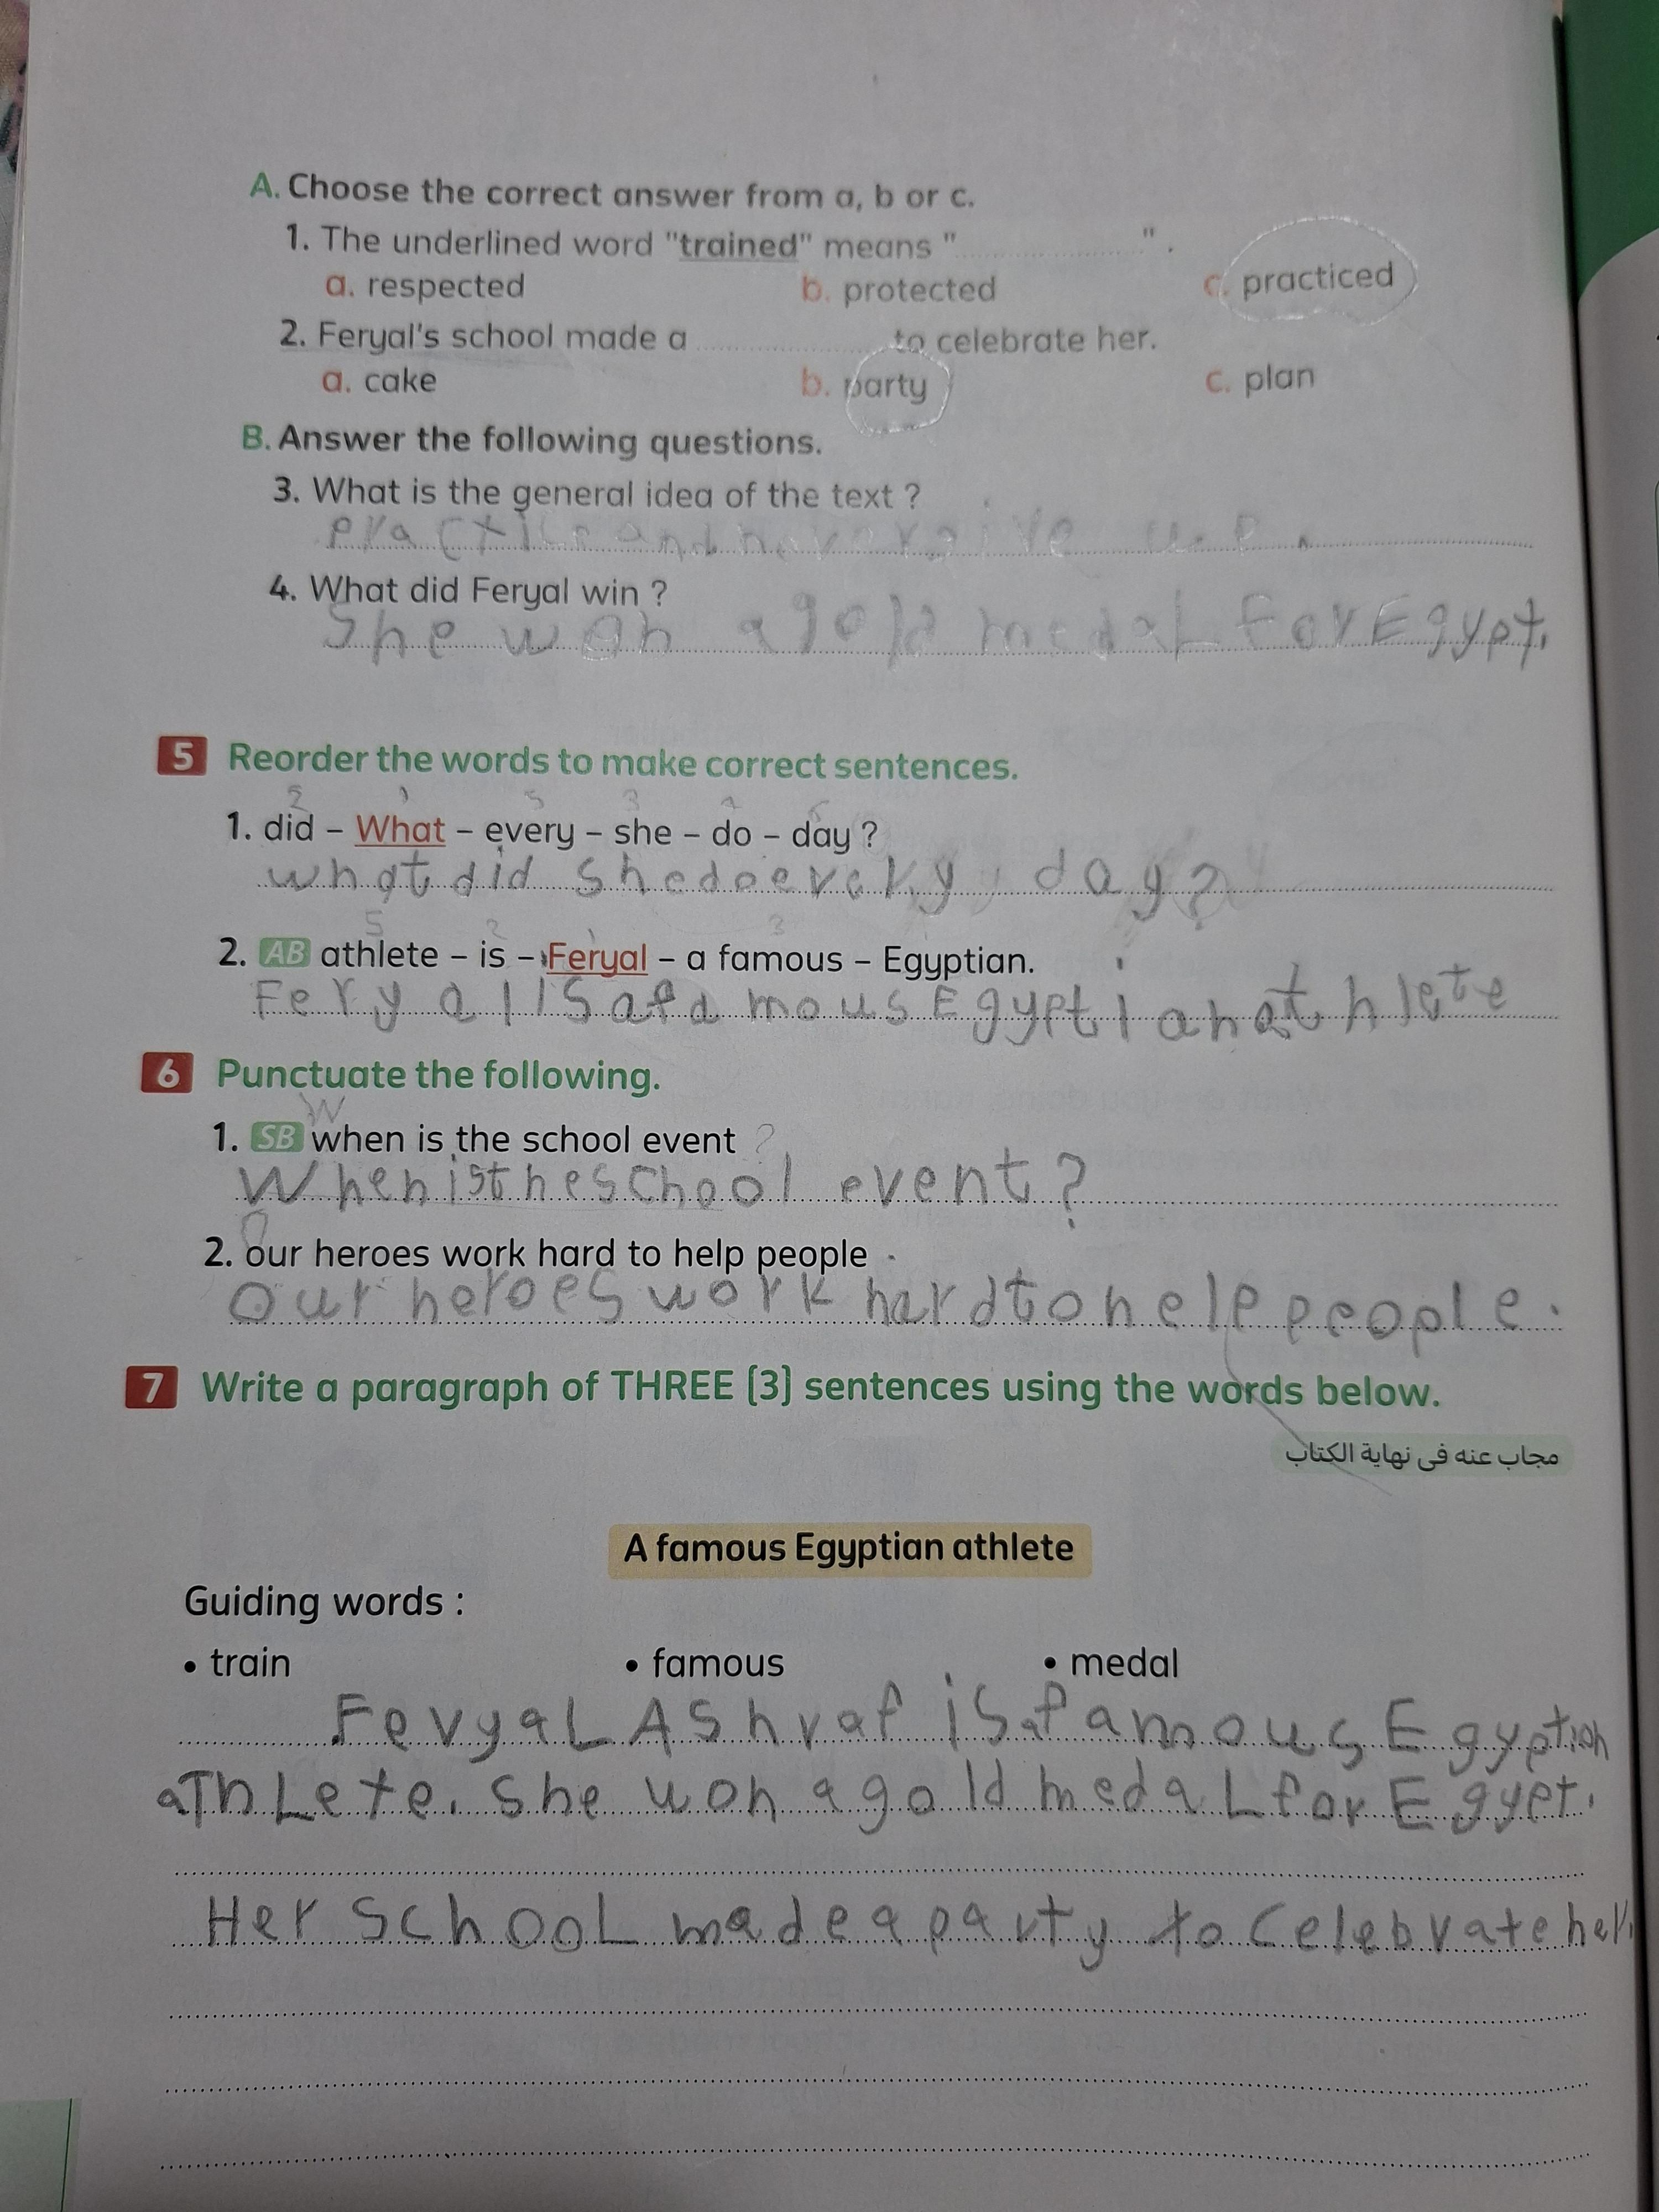 A. Choose the correct answer from a, b or c.
1. The underlined word "trained" means "....................".
a. respected b. protected c. practiced
2. Feryal's school made a .................... to celebrate her.
a. cake b. party c. plan
B. Answer the following questions.
3. What is the general idea of the text ?
Practice and never give up.
4. What did Feryal win ?
She won a gold medal for Egypt.
5 Reorder the words to make correct sentences.
2 1 5 3 4 6
1. did – What – every – she – do – day ?
what did she do every day?
5 2 1 3
2. AB athlete – is – Feryal – a famous – Egyptian.
Feryal is a famous Egyptian athlete
6 Punctuate the following.
W
1. SB when is the school event ?
When is the school event?
O
2. our heroes work hard to help people .
Our heroes work hard to help people.
7 Write a paragraph of THREE (3) sentences using the words below.
مجاب عنه فى نهاية الكتاب
A famous Egyptian athlete
Guiding words :
• train • famous • medal
Feryal Ashraf is a famous Egyptian
athlete. She won a gold medal for Egypt.
Her school made a party to celebrate her.